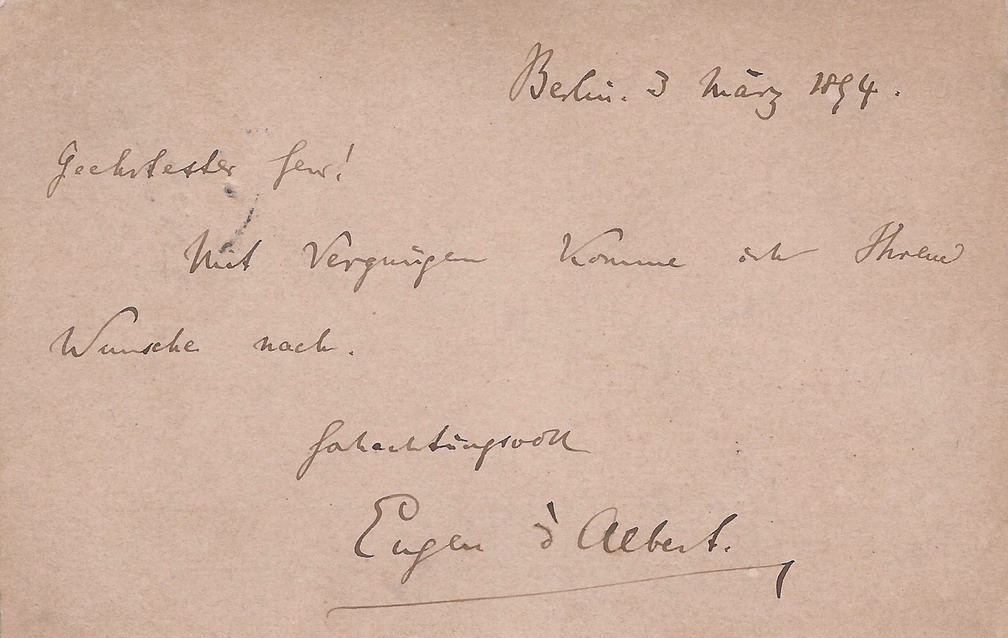 Berlin. 3 März 1894.
Geehrtester Herr!
Mit Vergnügen komme ich Ihrem
Wunsche nach.
Hochachtungsvoll
Eugen d'Albert.